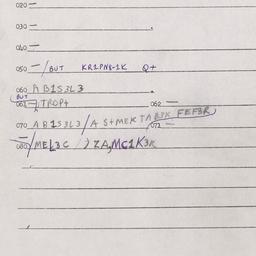 020 —
030 —
040 —
050 — / BUT KR1PN8-1K Q+
060 A B1S3L3
BUT
061 TROP4 062 —
070 A B1S3L3 / A S+MEK TA B3K FEF3R
072 —
080 / MEL3C / ZA, MC1K3R